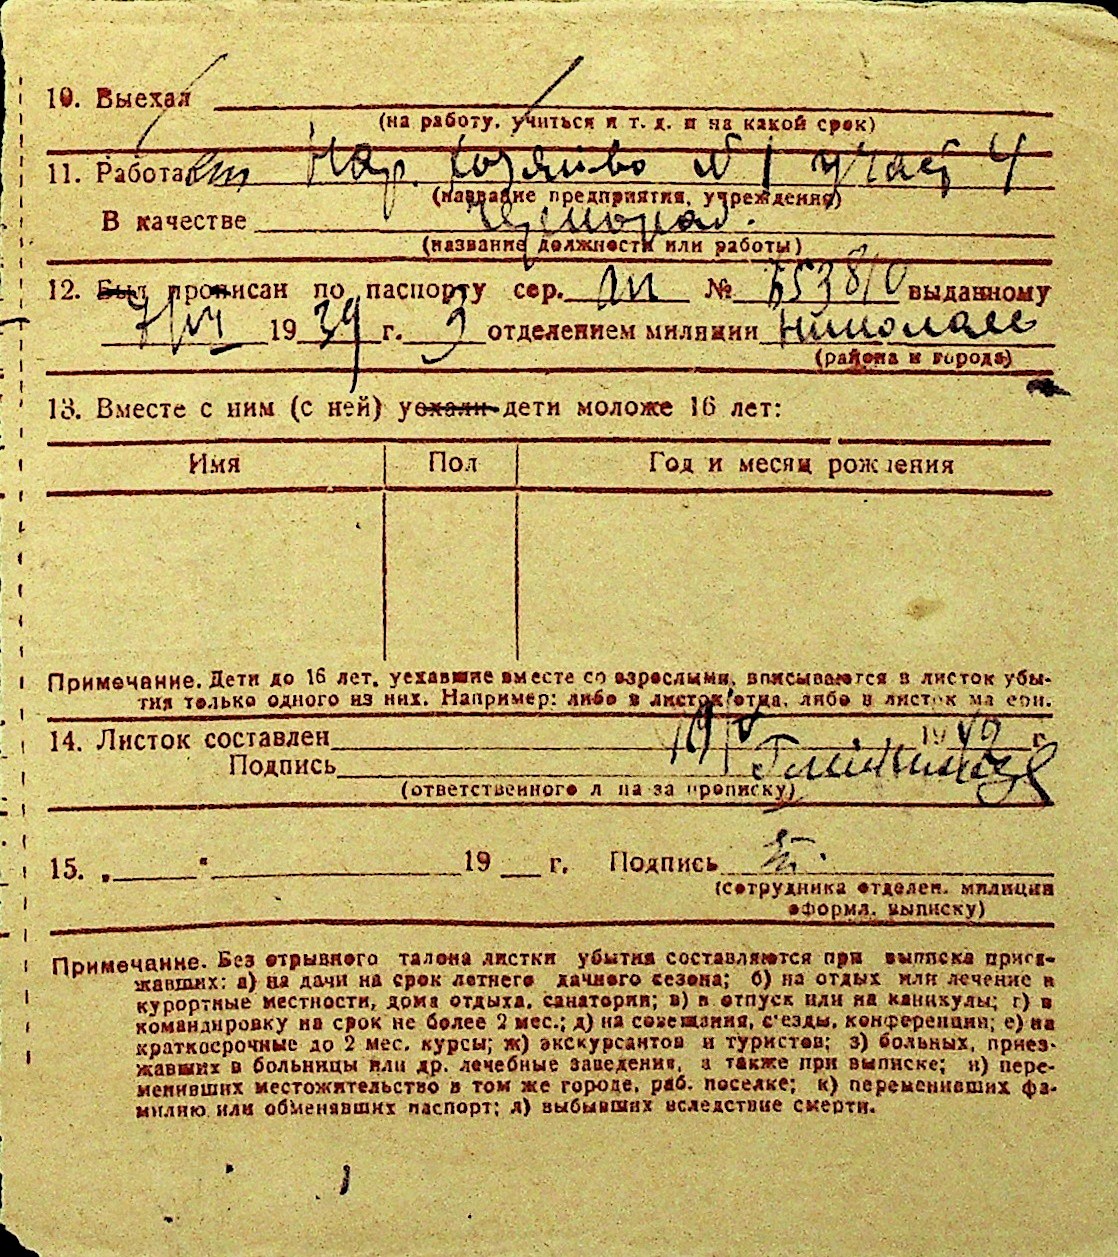 10. Выехал
(на работу, учиться и т. д. и на какой срок)
11. Работает Нар. хозяйво № 1 участ 4
(название предприятия, учреждения)
В качестве
(название должности или работы)
12. Был прописан по паспорту сер. № 653810 выданному
7/VI 1939 г. 3 отделением милиции Николаев
(района и города)
13. Вместе с ним (с ней) уехали дети моложе 16 лет:
Имя Пол Год и месяц рождения
Примечание. Дети до 16 лет, уехавшие вместе со взрослыми, вписываются в листок убы-
тия только одного из них. Например: либо в листок отца, либо в листок матери.
14. Листок составлен 1940 г.
Подпись
(ответственного лица за прописку)
15. „ " 19 г. Подпись
(сотрудника отделен. милиции
оформл. выписку)
Примечание. Без отрывного талона листки убытия составляются при выписке приез-
жавших: а) на дачи на срок летнего дачного сезона; б) на отдых или лечение в
курортные местности, дома отдыха, санатории; в) в отпуск или на каникулы; г) в
командировку на срок не более 2 мес.; д) на совещания, с'езды, конференции; е) на
краткосрочные до 2 мес. курсы; ж) экскурсантов и туристов; з) больных, приез-
жавших в больницы или др. лечебные заведения, а также при выписке; и) пере-
менивших местожительство в том же городе, раб. поселке; к) переменивших фа-
милию или обменявших паспорт; л) выбывших вследствие смерти.